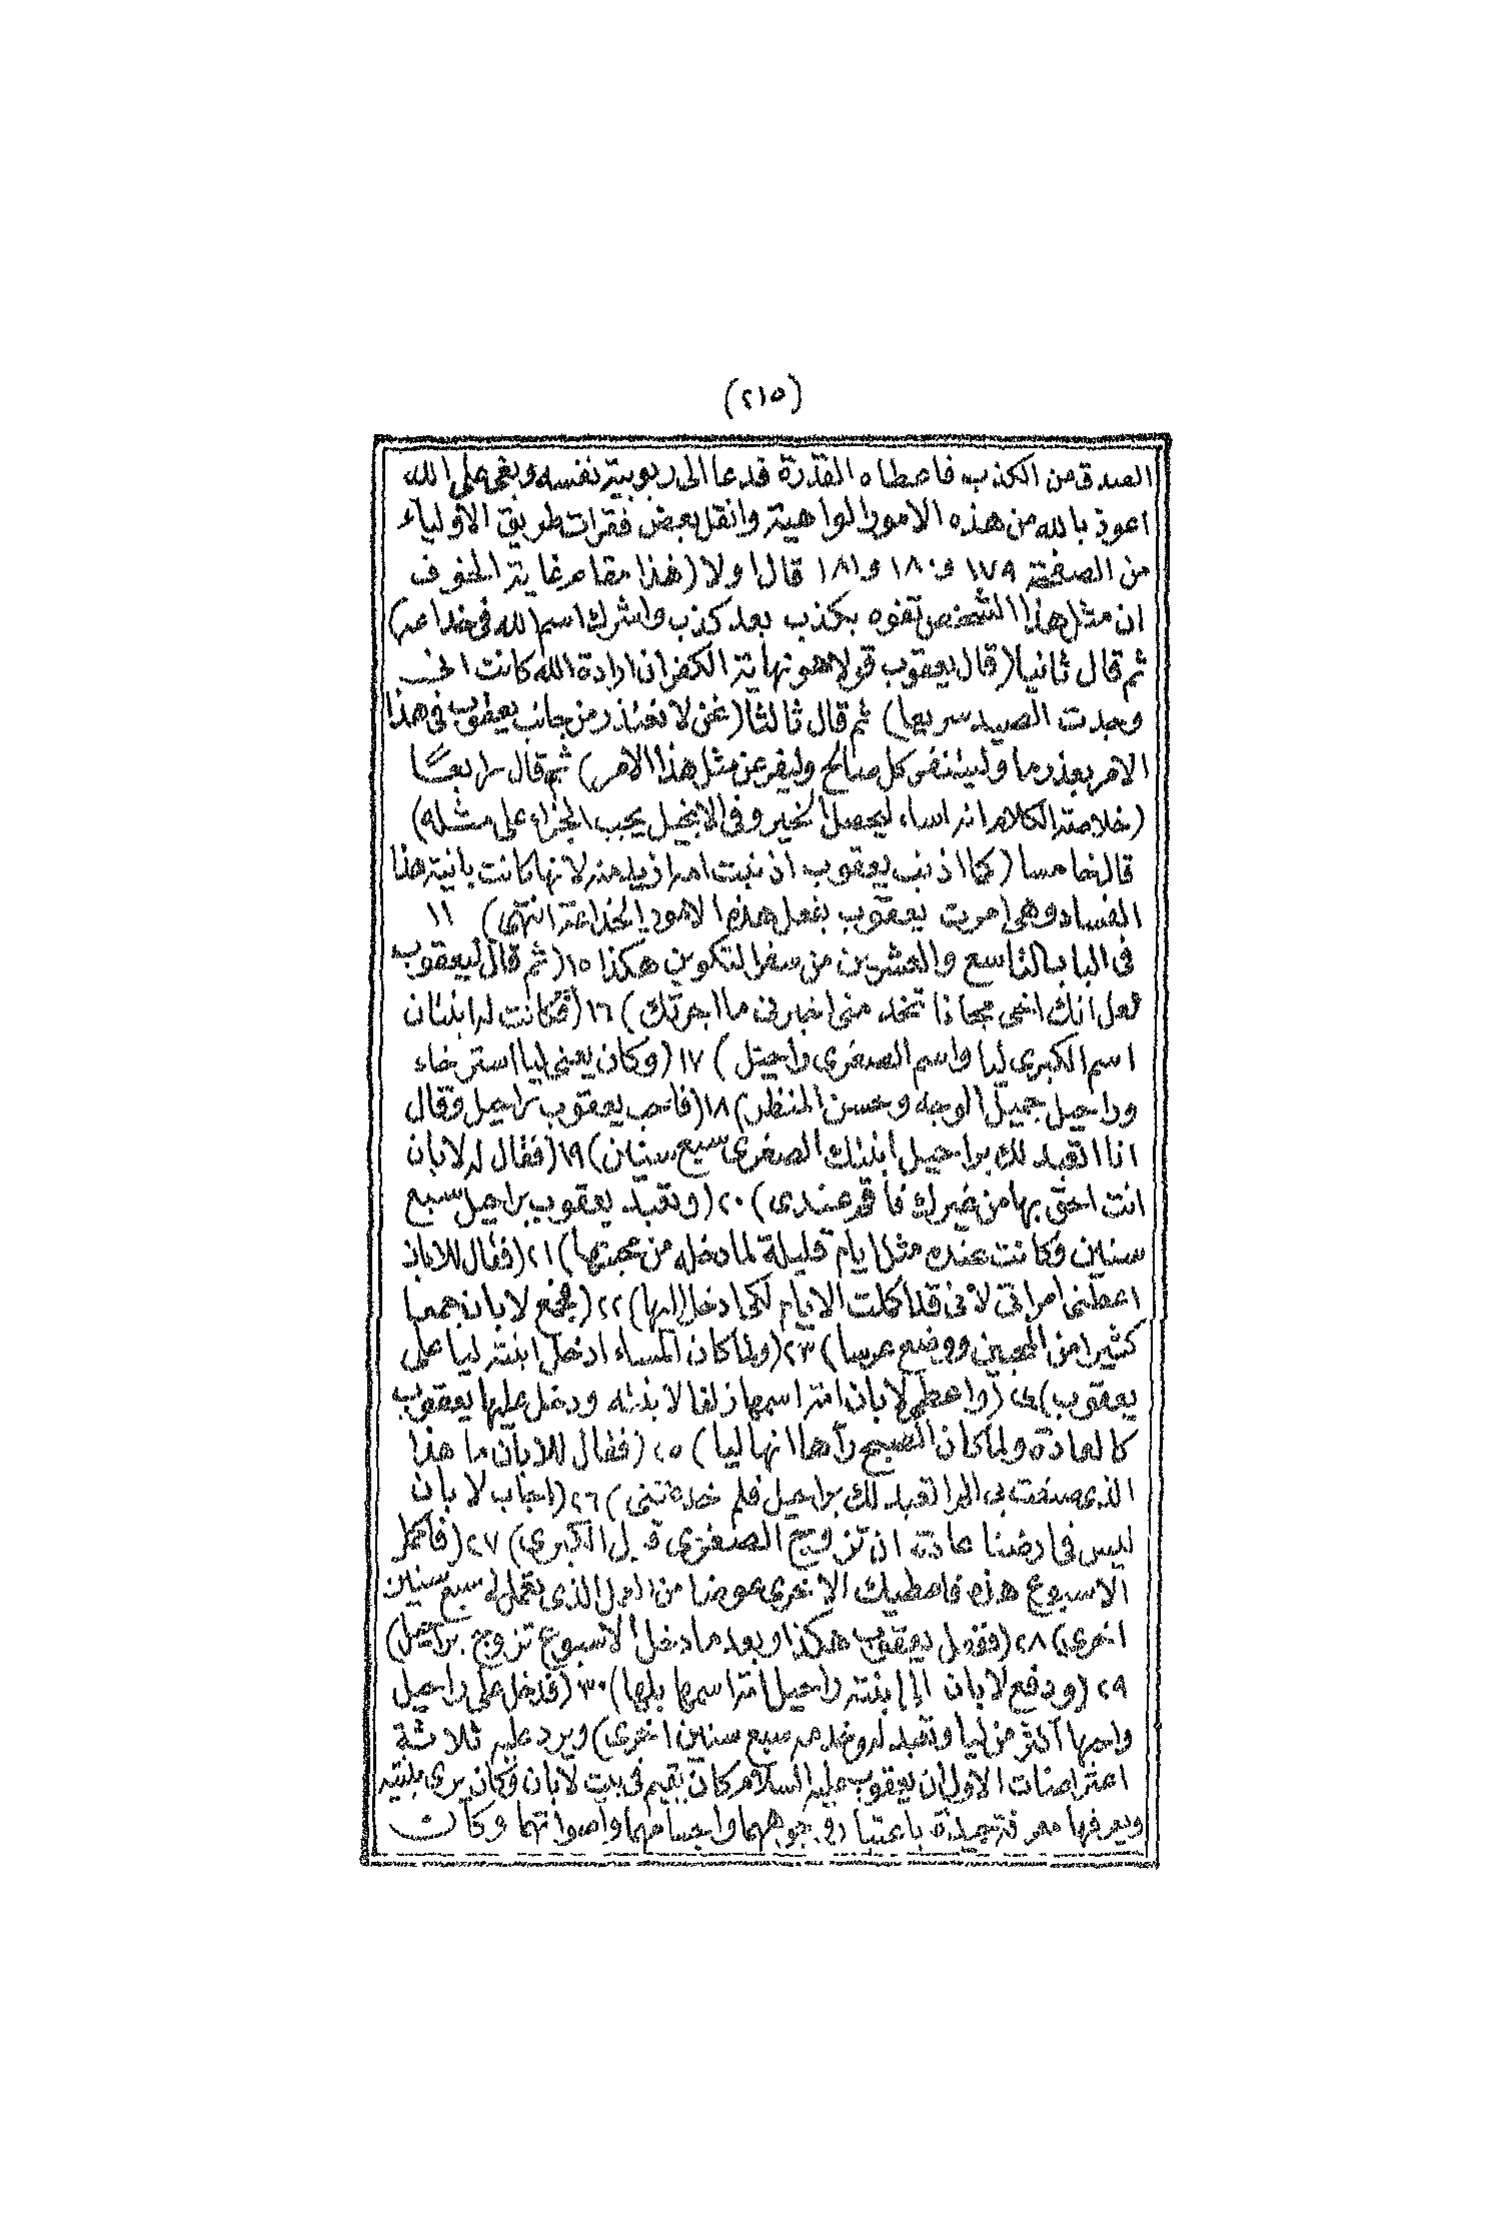 (٢١٥)
الصدق من الكذب فاعطاه القدرة فدعا الى ربوبية نفسه وبغى على الله
اعوذ بالله من هذه الامور الواهية وانقل بعض فقرات طريق الاولياء
من الصفحة ١٧٩ و١٨٠ و١٨١ قال اولا (هذا مقام غاية الخوف
ان مثل هذا الشخص تفوه بكذب بعد كذب واشرك اسم الله فى خداعه)
ثم قال ثانيا (قال يعقوب قولا هو نهاية الكفر ان ارادة الله كانت انى
وجدت الصيد سريعا) ثم قال ثالثا (نحن لا نعتذر من جانب يعقوب فى هذا
الامر بعذر ما وليتنفر كل صالح وليفر عن مثل هذا الامر) ثم قال رابعا
(خلاصة الكلام انه اساء ليحصل الخير وفى الانجيل يجب الجزاء على مثله)
قال خامسا (كما اذنب يعقوب اذنبت امه ازيد منه لانها كانت بانية هذا
الفساد وهى امرت يعقوب بفعل هذه الامور الخداعة انتهى) ١١
فى الباب التاسع والعشرين من سفر التكوين هكذا ١٥ (ثم قال ليعقوب
لعل انك اخى مجاذا تخدمنى اخبرنى ما اجرتك) ١٦ (فكانت له ابنتان
اسم الكبرى ليا واسم الصغرى راحيل) ١٧ (وكان بعينى ليا استرخاء
وراحيل جميل الوجه وحسن المنظر) ١٨ (فاحب يعقوب راحيل وقال
انا اتعبد لك براحيل ابنتك الصغرى سبع سنين) ١٩ (فقال له لابان
انت احق بها من غيرك فاقم عندى) ٢٠ (وتعبد يعقوب براحيل سبع
سنين وكانت عنده مثل ايام قليلة لما دخله من محبتها) ٢١ (فقال للابان
اعطنى امراتى لانى قد اكملت الايام لكى ادخل اليها) ٢٢ (فجمع لابان جمعا
كثيرا من المحبين ووضع عرسا) ٢٣ (ولما كان المساء ادخل ابنته ليا على
يعقوب) ٢٤ (واعطى لابان امة اسمها زلفا لابنته ودخل عليها يعقوب
كالعادة ولما كان الصبح رآها انها ليا) ٢٥ (فقال للابان ما هذا
الذى صنعت بى الم اتعبد لك براحيل فلم خدعتنى) ٢٦ (اجاب لابان
ليس فى ارضنا عادة ان تزوج الصغرى قبل الكبرى) ٢٧ (فاكمل
الاسبوع هذه فاعطيك الاخرى عوضا من العمل الذى تعمل له سبع سنين
اخرى) ٢٨ (ففعل يعقوب هكذا وبعد ما دخل الاسبوع تزوج براحيل)
٢٩ (ودفع لابان الى ابنته راحيل امة اسمها بلها) ٣٠ (فدخل على راحيل
واحبها اكثر من ليا وتعبد له وخدمه سبع سنين اخرى) ويرد عليه ثلاثة
اعتراضات الاول ان يعقوب عليه السلام كان يقيم فى بيت لابان وكان يرى بنتيه
ويعرفهما معرفة جيدة باعتبار وجوههما واجسامهما واصواتهما وكانت